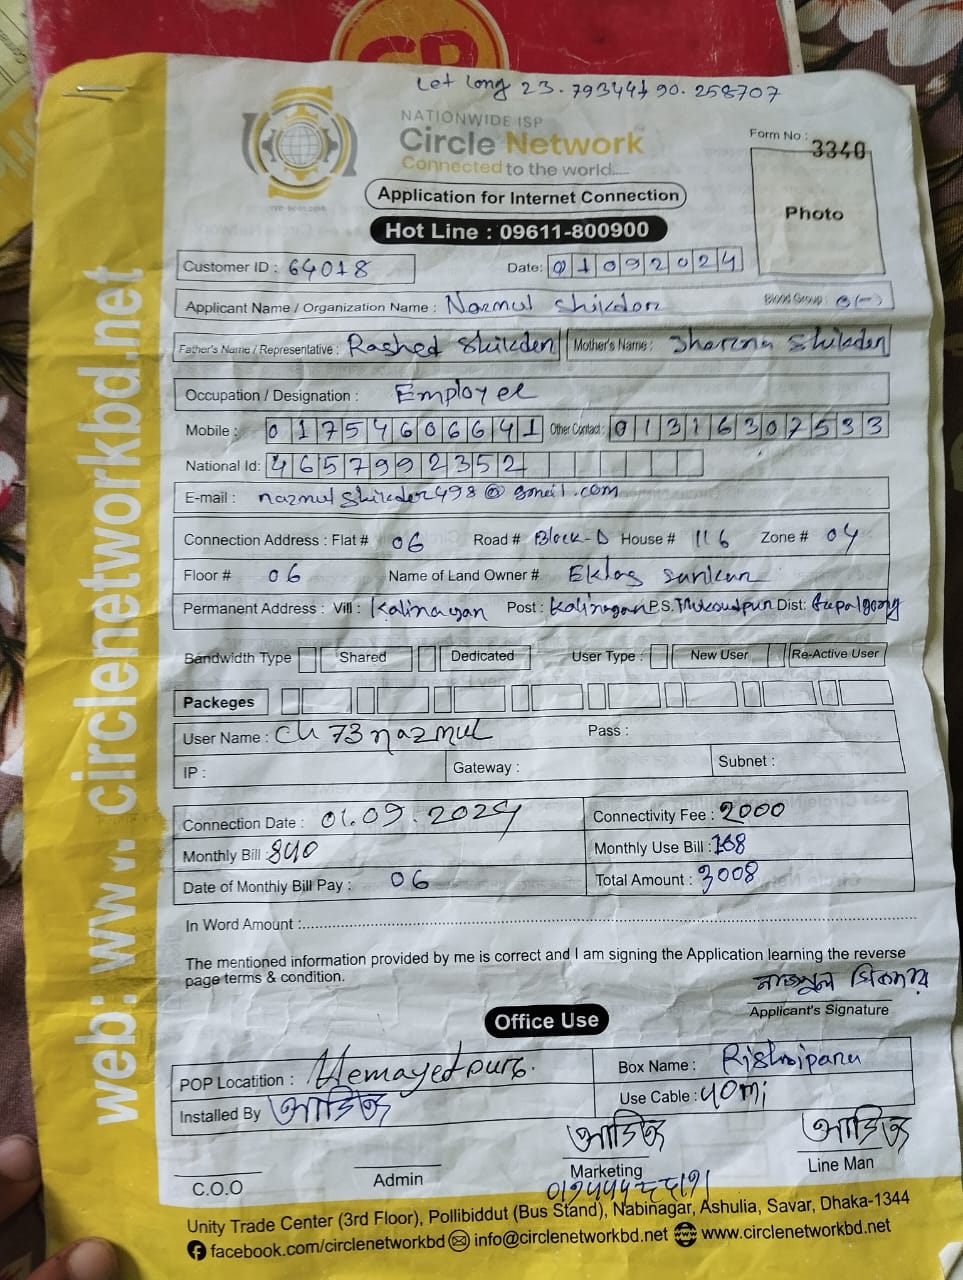 Let long 23.793447 90.258707
NATIONWIDE ISP
Circle Network
Connected to the world.....
Form No : 3340
Photo
Application for Internet Connection
Hot Line : 09611-800900
Customer ID : 64018 Date: 01092024
Applicant Name / Organization Name : Nazmul Shikdar Blood Group : B(-)
Father's Name / Representative : Rashed Shikder Mother's Name : Sharma Shikder
Occupation / Designation : Employee
Mobile : 01754606641 Other Contact : 01316307533
National Id: 4657992352
E-mail : nazmulshikder498@gmail.com
Connection Address : Flat # 06 Road # Block-D House # 116 Zone # 04
Floor # 06 Name of Land Owner # Eklas
Permanent Address : Vill : Kalinagar Post : Kalinagar P.S. Dist:
Bandwidth Type Shared Dedicated User Type : New User Re-Active User
Packeges
User Name : Ch73nazmul Pass :
IP : Gateway : Subnet :
Connection Date : 01.09.2024 Connectivity Fee : 2000
Monthly Bill : 840 Monthly Use Bill : 168
Date of Monthly Bill Pay : 06 Total Amount : 3008
In Word Amount :
The mentioned information provided by me is correct and I am signing the Application learning the reverse
page terms & condition.
নাজমুল শিকদার
Applicant's Signature
Office Use
POP Locatition : Hemayedpure. Box Name : Rishipara
Installed By Use Cable : 40mi
C.O.O Admin Marketing Line Man
Unity Trade Center (3rd Floor), Pollibiddut (Bus Stand), Nabinagar, Ashulia, Savar, Dhaka-1344
facebook.com/circlenetworkbd info@circlenetworkbd.net www.circlenetworkbd.net
web: www.circlenetworkbd.net